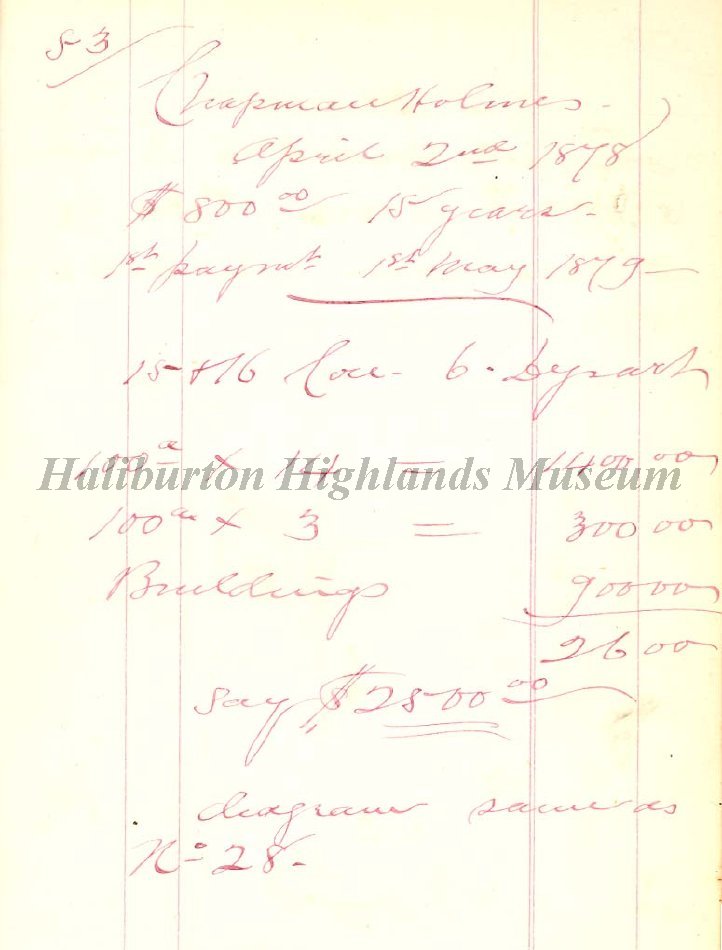 53/
Chapman Holmes -
April 2nd 1878
$800 00 15 years -
1st paymt 1st May 1879 -
15 + 16 Con - 6 - Dysart
100 a x 14 = 1400 00
Haliburton Highlands Museum
100 ac x 3 = 300 00
Buildings 900 00
2600
say $2500 00
diagram same as
No 28 -